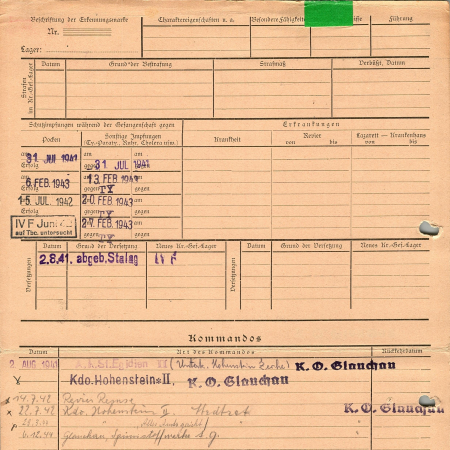 Beschriftung der Erkennungsmarke
Nr.
Lager:
Charaktereigenschaften u. a.
Besondere Fähigkeiten
Führung
Strafen im Kr.-Gef.-Lager
Datum
Grund der Bestrafung
Strafmaß
Verbüßt, Datum
Schutzimpfungen während der Gefangenschaft gegen
Erkrankungen
Pocken
Sonstige Impfungen
(Ty.-Paraty., Ruhr, Cholera usw.)
Krankheit
Revier
von bis
Lazarett - Krankenhaus
von bis
am 31 JULI 1941
Erfolg
am 31 JUL 1941
gegen
am 6. FEB. 1943
Erfolg
am 13 FEB 1943
gegen TY
am 15. JUL. 1942
Erfolg
am 20 FEB 1943
gegen TY
IV F Juni
auf Tbc. untersucht
am 27. FEB. 1943
gegen TY
Versetzungen
Datum
Grund der Versetzung
Neues Kr.-Gef.-Lager
Versetzungen
Datum
Grund der Versetzung
Neues Kr.-Gef.-Lager
2.8.41. abgeb. Stalag IV F
Kommandos
Datum
Art des Kommandos
Rückkehrdatum
2. AUG 1941
K. O. Glauchau
Kdo. Hohenstein II, K. O. Glauchau
14.7.42 Revier
22.7.42 Kdo. Hohenstein II. K. O. Glauchau
6.12.44 Glauchau,